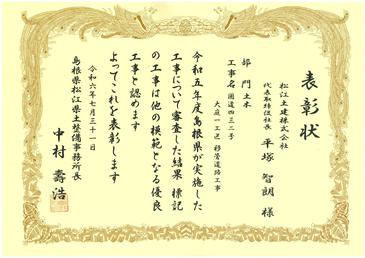 表彰状
松江土建株式会社
代表取締役社長 平塚智朗 様
部門 土木
工事名 国道四三二号
大庭一工区 移管道路工事
令和五年度島根県が実施した
工事について審査した結果 標記
の工事は他の模範となる優良
工事と認めます
よってこれを表彰します
令和六年七月三十一日
島根県松江県土整備事務所長
中村 壽浩